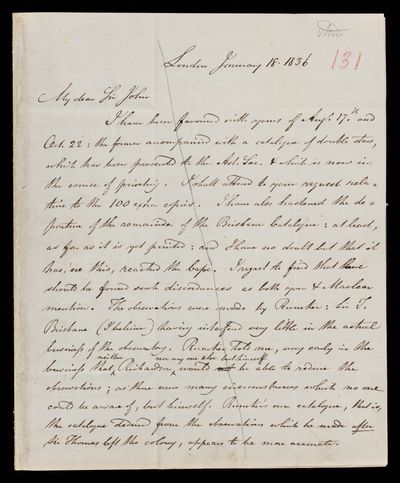 131
London January 18. 1836
My dear Sir John
I have been favoured with yours of Augt. 17th and
Oct. 22d: the former accompanied with a catalogue of double stars,
which has been presented to the Ast. Soc. & which is now in
the course of printing. I shall attend to your request rela=
tive to the 100 extra copies. I have also hastened the de=
parture of the remainder of the Brisbane Catalogue: at least,
as far as it is yet printed: and I have no doubt but that it
has, ere this, reached the Cape. I regret to find that there
should be found such discordances as both you & Maclear
mention. The observations were made by Rumker: Sir T.
Brisbane (I believe) having interfered very little in the actual
business of the observatory. Rumker told me, very early in the
neither nor any one else but himself
business that Richardson would be able to reduce the
observations; as there were many circumstances which no one
could be aware of, but himself. Rumker's own catalogue, that is,
the catalogue deduced from the observations which he made after
Sir Thomas left the colony, appears to be more accurate.